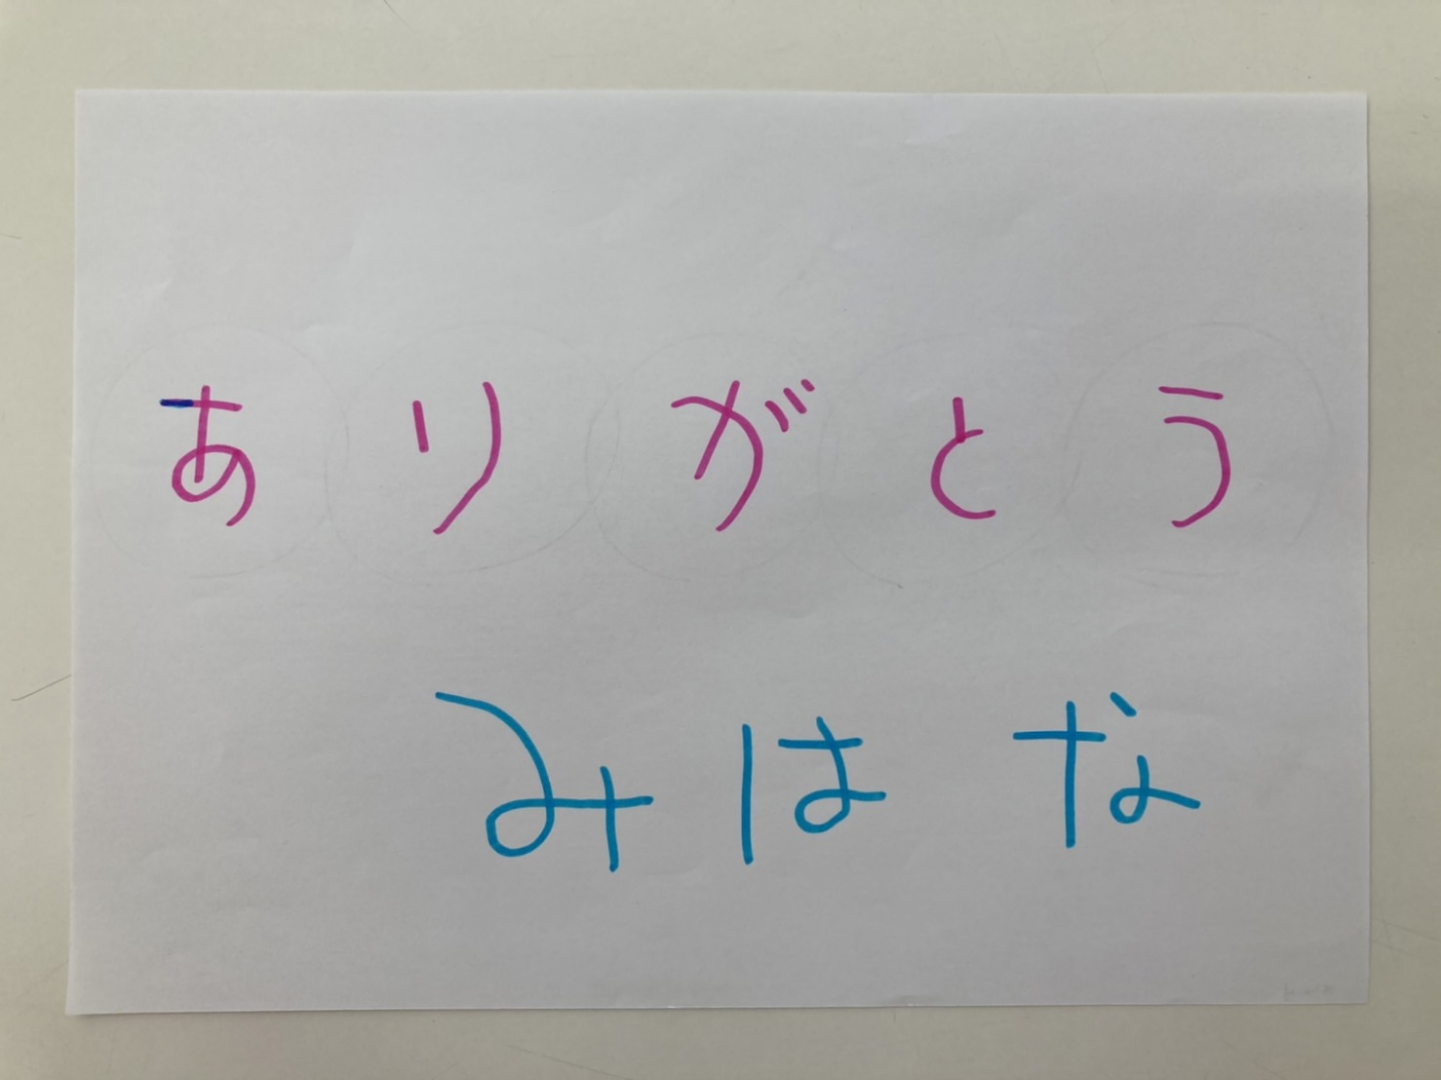 ありがとう
みはな